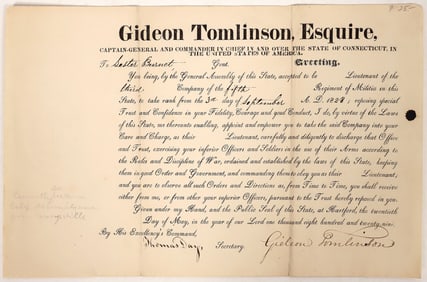 Gideon Tomlinson, Esquire,
CAPTAIN-GENERAL AND COMMANDER IN CHIEF IN AND OVER THE STATE OF CONNECTICUT, IN
THE UNITED STATES OF AMERICA.
To Burnet Gent. Greeting.
You being, by the General Assembly of this State, accepted to be Lieutenant of the
third Company of the fifth Regiment of Militia in this
State, to take rank from the 3rd day of September A. D. 1828; reposing special
Trust and Confidence in your Fidelity, Courage and good Conduct, I do, by virtue of the Laws
of this State, me thereunto enabling, appoint and empower you to take the said Company into your
Care and Charge, as their Lieutenant, carefully and diligently to discharge that Office
and Trust, exercising your inferior Officers and Soldiers in the use of their Arms according to
the Rules and Discipline of War, ordained and established by the laws of this State, keeping
them in good Order and Government, and commanding them to obey you as their Lieutenant,
and you are to observe all such Orders and Directions as, from Time to Time, you shall receive
either from me, or from other your superior Officers, pursuant to the Trust hereby reposed in you.
Given under my Hand, and the Public Seal of this State, at Hartford, the twentieth
Day of May, in the year of our Lord one thousand eight hundred and twenty-nine.
By His Excellency's Command,
Thomas Day, Secretary. Gideon Tomlinson